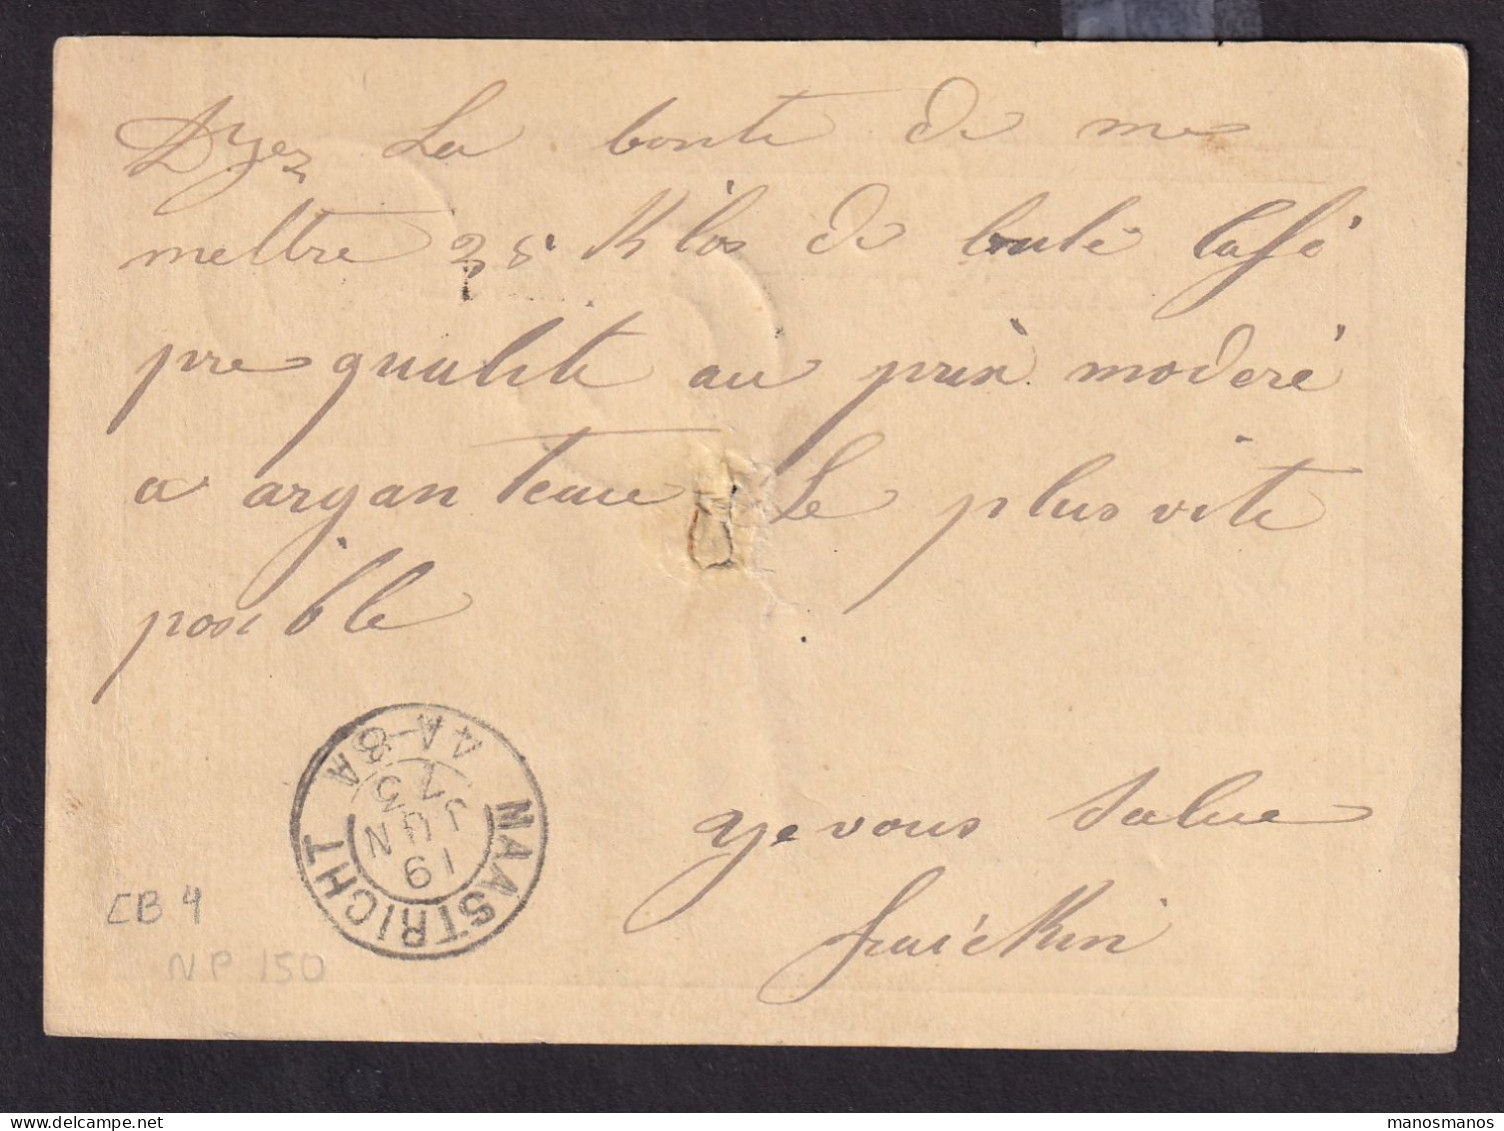 Ayez La bonte de me
mettre 25 Kilos de brulé Café
pre qualite au prix moderé
a arganteau Le plus vite
posible
ye vous Salue
fraickin
MAASTRICHT
4A-8A
19
JUN
CB 4
NP 150
manosmanos